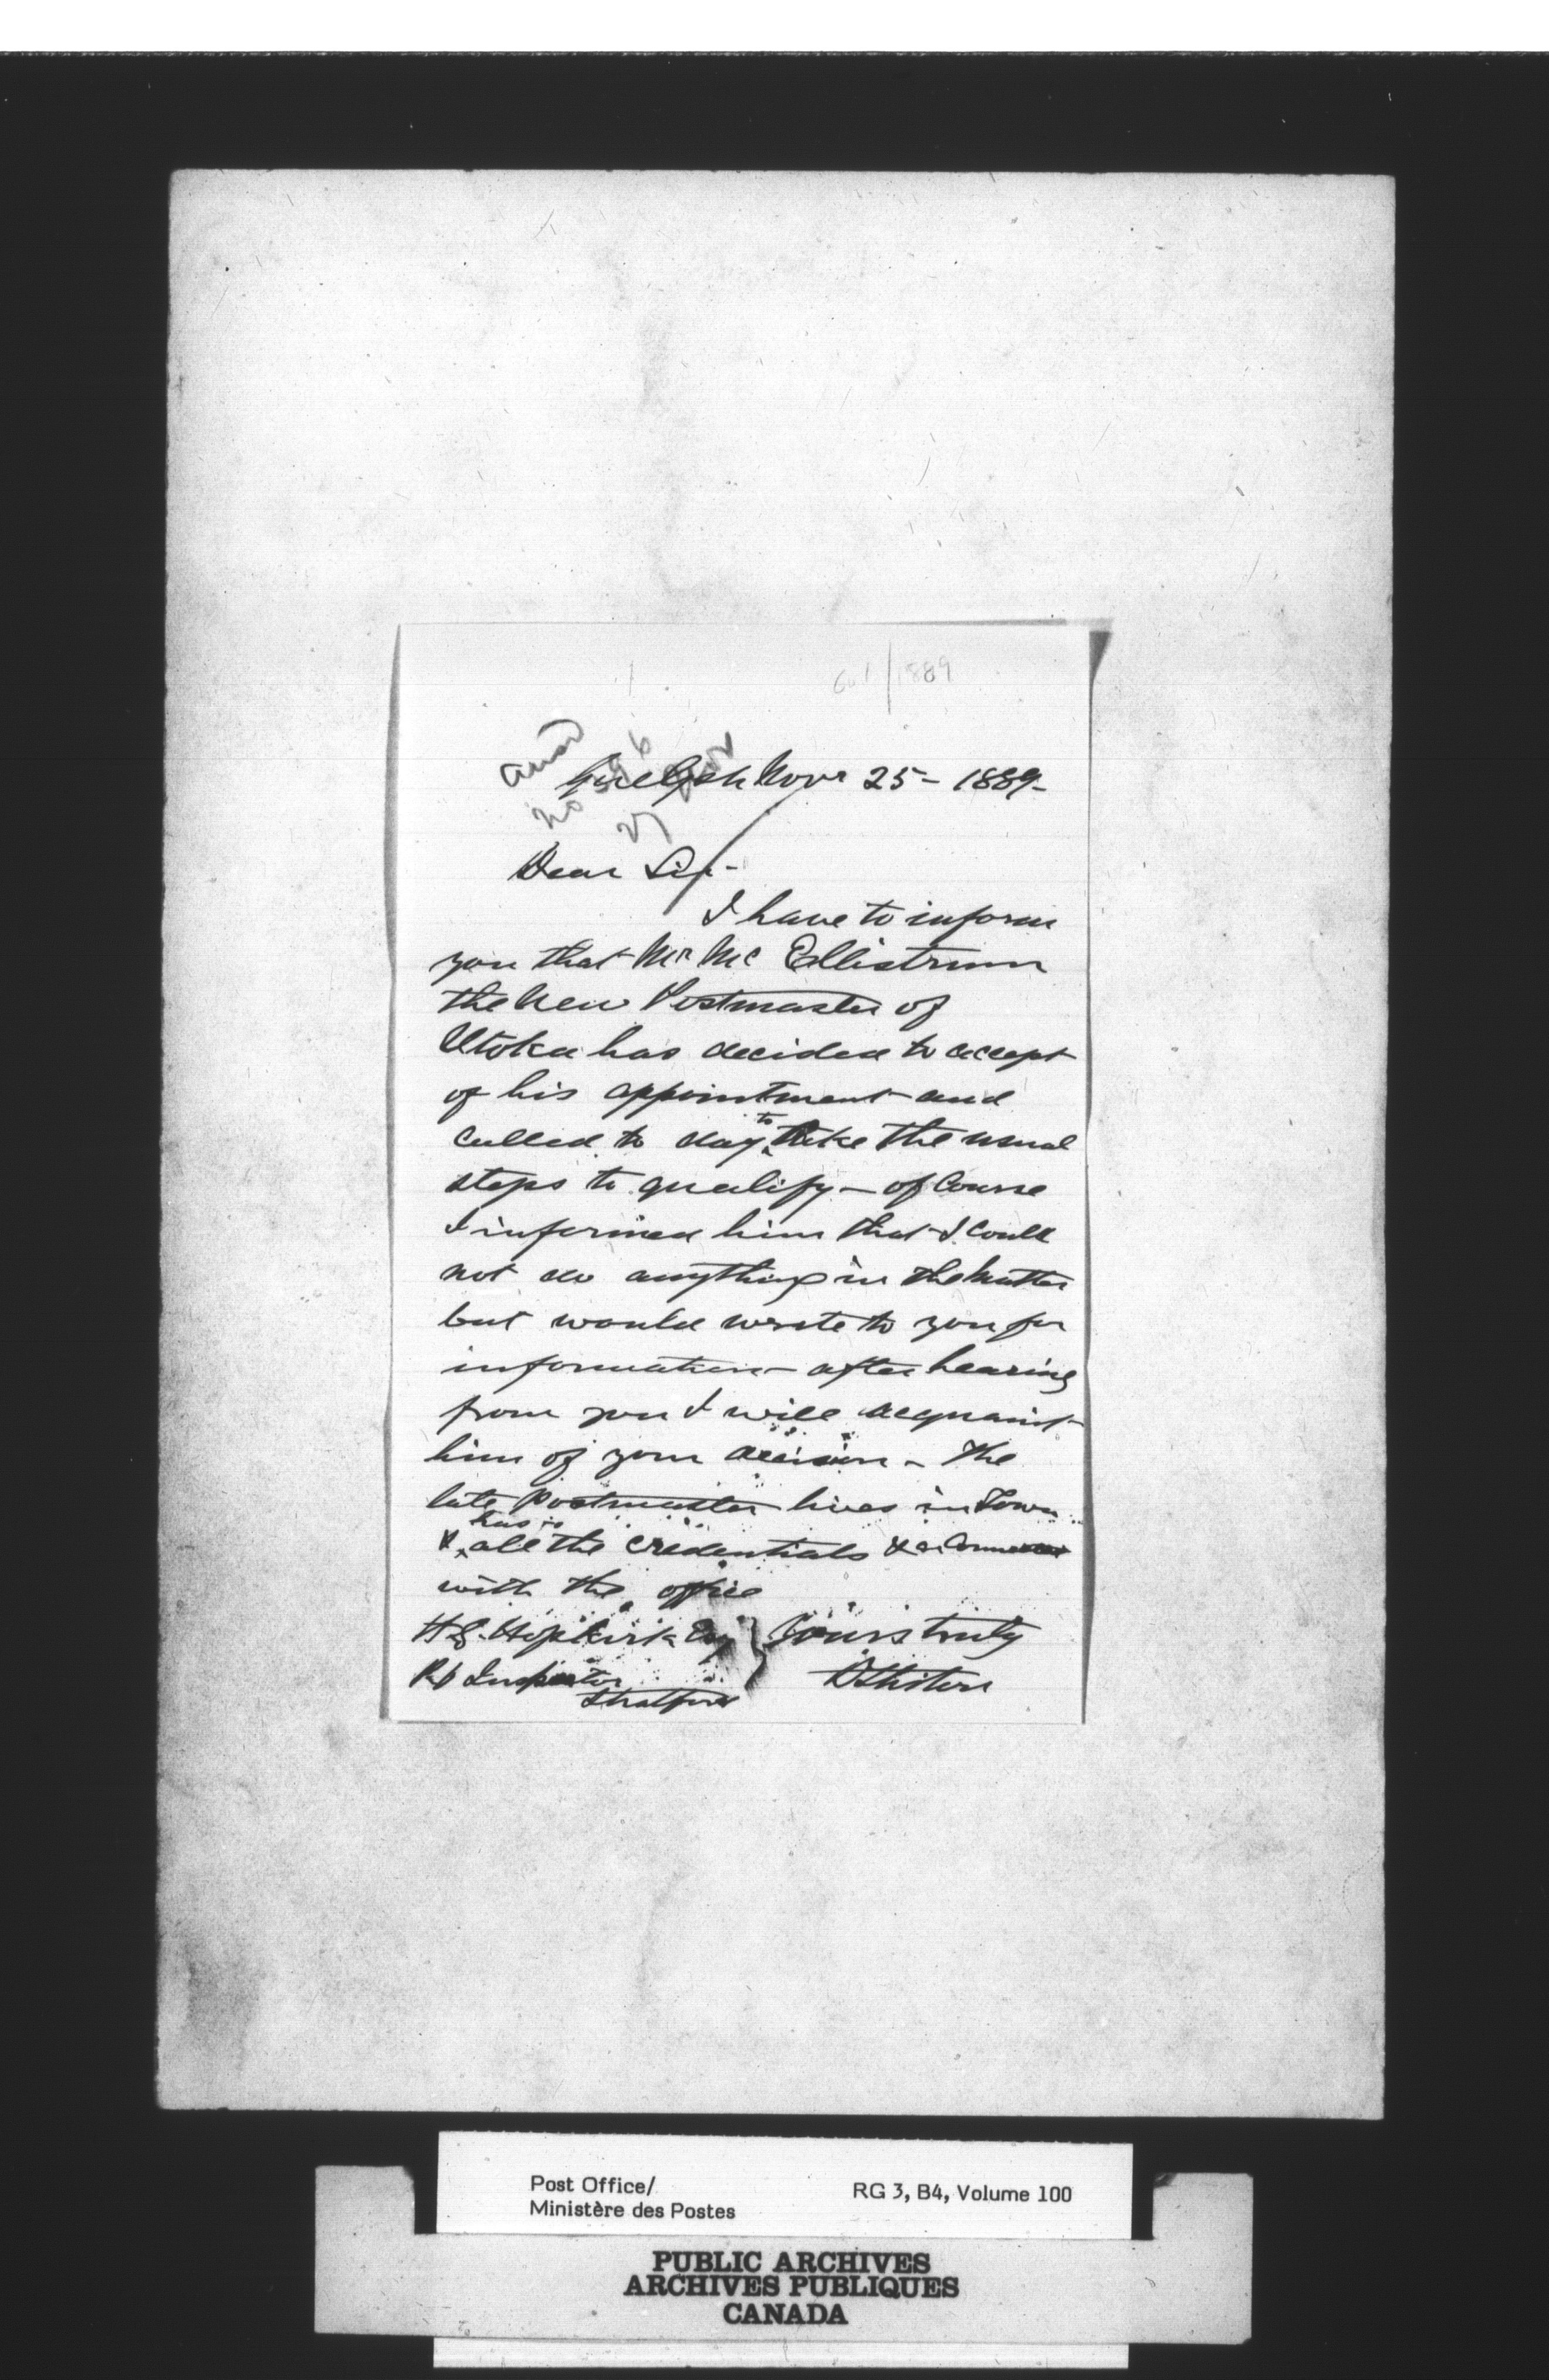 601/1889
ansd
no 596
27 Nov
Guelph Novr 25 - 1889 -
Dear Sir -
I have to inform
you that Mr Mc Ellistrum
the New Postmaster of
Utoka has decided to accept
of his appointment and
called to day to take the usual
steps to qualify - of Course
I informed him that I could
not do anything in the Matter
but would wrote to you for
information - after hearing
from you I will acquaint
him of your decision - The
late Postmaster lives in Town
& has all the credentials &c
with the office
H.G. Hopkirk Esq } Yours truly
P.O Inspector
Stratford
Post Office/
Ministère des Postes
RG 3, B4, Volume 100
PUBLIC ARCHIVES
ARCHIVES PUBLIQUES
CANADA